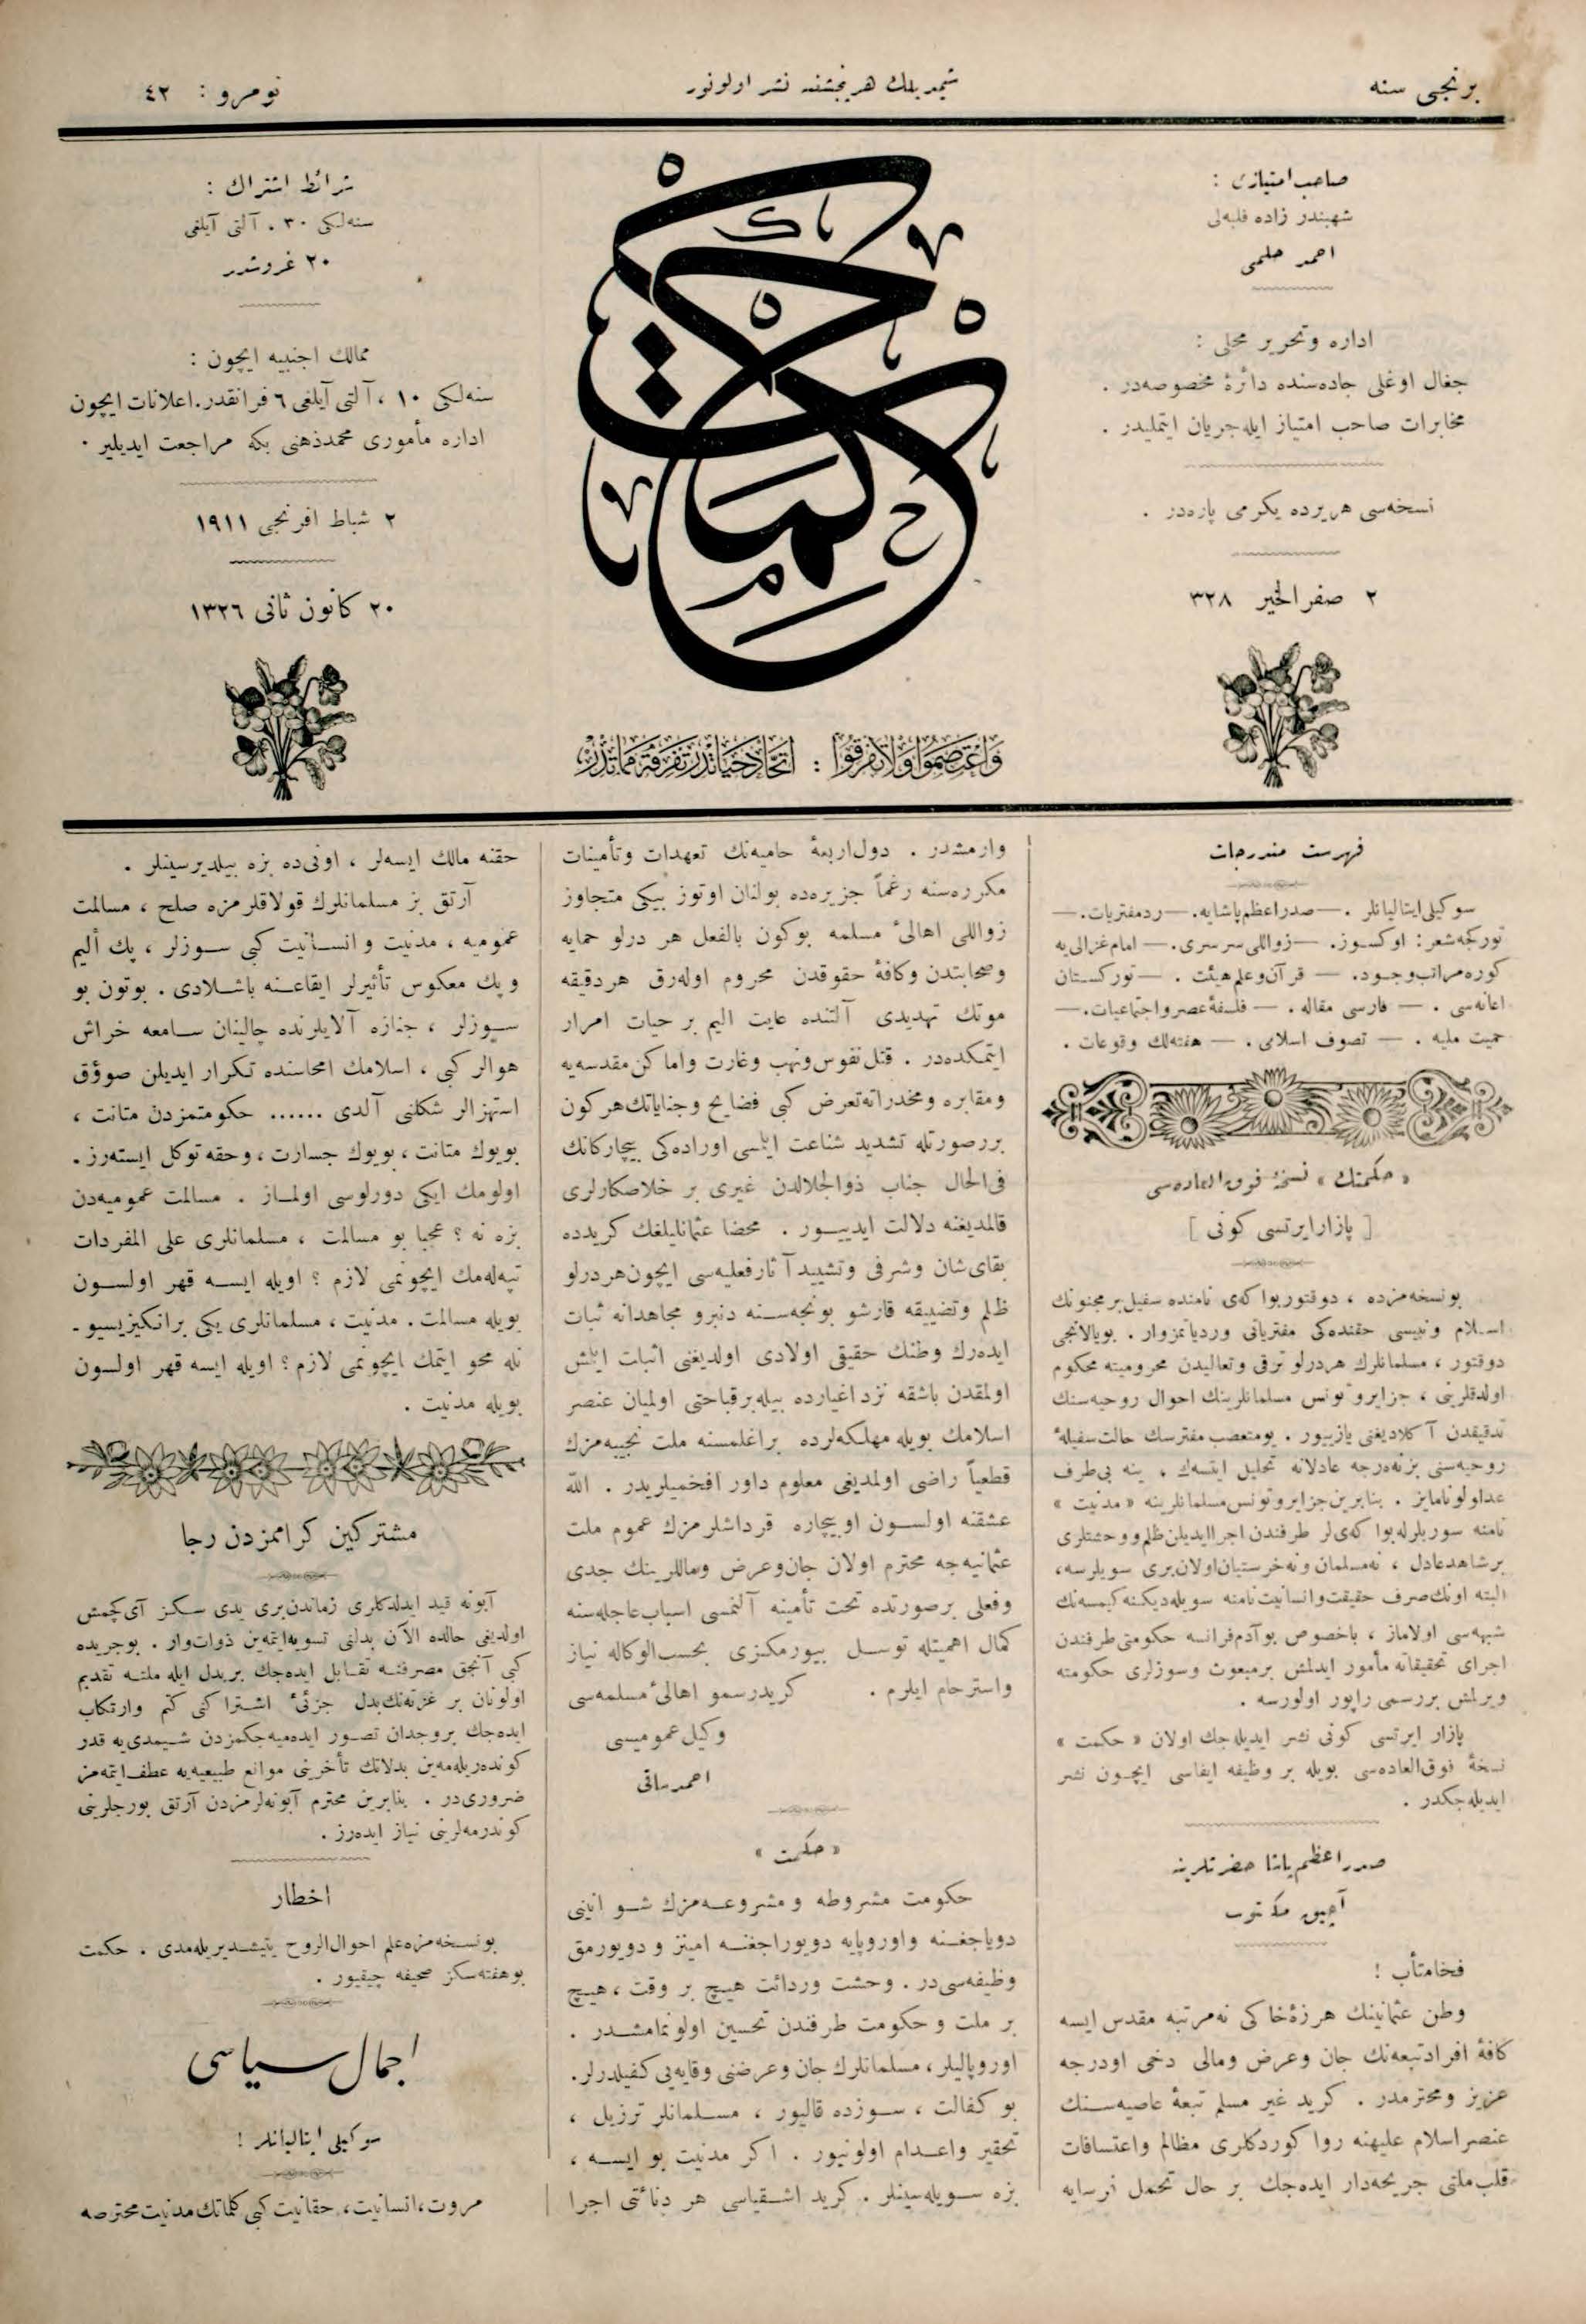 برنجی سنه
شیمدیلك هر پنجشنبه نشر اولونور
نومرو : ٤٢
صاحب امتیازی :
شهبندر زاده فلبه‌لی
احمد حلمی
اداره وتحریر محلی :
جغال اوغلی جاده‌سنده دائرۀ مخصوصه‌در .
مخابرات صاحب امتیاز ایله جریان ایتملیدر .
نسخه‌سی هر یرده یکرمی پاره‌در .
٢ صفر الخیر ٣٢٨
حکمت
واعتصموا ولا تفرقوا : اتحاد حیاتدر تفرقه مماتدر
شرائط اشتراك :
سنه‌لکی ٣٠ ، آلتی آیلغی
٢٠ غروشدر
ممالك اجنبیه ایچون :
سنه‌لکی ١٠ ، آلتی آیلغی ٦ فرانقدر . اعلانات ایچون
اداره مأموری محمد ذهنی بکه مراجعت ایدیلیر .
٢ شباط افرنجی ١٩١١
٢٠ کانون ثانی ١٣٢٦
فهرست مندرجات
سوکیلی ایتالیانلر . — صدراعظم پاشایه . — رد مفتریات . —
تورکجه شعر : اوکسوز . — زواللی سرسری . — امام غزالی یه
کوره مراتب وجود . — قرآن وعلم هیئت . — تورکستان
اعانه‌سی . — فارسی مقاله . — فلسفۀ عصر واجتماعیات . —
حمیت ملیه . — تصوف اسلامی . — هفته‌لك وقوعات .
« حکمتك » نسخۀ فوق العاده‌سی
[ پازار ایرتسی کونی ]
بو نسخه‌مزده ، دوقتور بواکه‌ی نامنده سفیل بر مجنونك
اسلام ونبیسی حقنده‌کی مفتریاتی وردیاتمز وار . بو یالانجی
دوقتور ، مسلمانلرك هر درلو ترقی وتعالیدن محرومیته محکوم
اولدقلرینی ، جزایر و تونس مسلمانلرینك احوال روحیه‌سنك
تدقیقدن آ کلادیغنی یازییور . بو متعصب مفترسك حالت سفیلۀ
روحیه‌سنی بز نه‌درجه عادلانه تحلیل ایتسه‌ك ، ینه بی‌طرف
عد اولونامایز . بنابرین جزایر و تونس مسلمانلرینه « مدنیت »
نامنه سوریلرله بواکه‌ی لر طرفندن اجرا ایدیلن ظلم و وحشتلری
بر شاهد عادل ، نه مسلمان و نه خرستیان اولان بری سویلرسه ،
البته اونك صرف حقیقت وانسانیت نامنه سویله‌دیکنه کیمسه‌نك
شبهه‌سی اولاماز ، باخصوص بو آدم فرانسه حکومتی طرفندن
اجرای تحقیقاته مأمور ایدلمش بر مبعوث وسوزلری حکومته
ویرلمش بر رسمی راپور اولورسه .
پازار ایرتسی کونی نشر ایدیله جك اولان « حکمت »
نسخۀ فوق العاده‌سی بویله بر وظیفه ایفاسی ایچون نشر
ایدیله جکدر .
صدر اعظم پاشا حضرتلرینه
آچیق مکتوب
فخامتمآب !
وطن عثمانینك هر ذرۀ خاکی نه مرتبه مقدس ایسه
کافۀ افراد تبعه‌نك جان وعرض ومالی دخی اودرجه
عزیز ومحترمدر . کرید غیر مسلم تبعۀ عاصیه‌سنك
عنصر اسلام علیهنه روا کوردکلری مظالم واعتسافات
قلب ملتی جریحه‌دار ایده‌جك بر حال تحمل فرسایه
وارمشدر . دول اربعۀ حامیه‌نك تعهدات وتأمینات
مکرره‌سنه رغماً جزیره‌ده بولنان اوتوز بیکی متجاوز
زواللی اهالیٔ مسلمه بوکون بالفعل هر درلو حمایه
وصحابتدن وکافۀ حقوقدن محروم اوله‌رق هر دقیقه
موتك تهدیدی آلتنده غایت الیم بر حیات امرار
ایتمکده‌در . قتل نفوس ونهب وغارت واماکن مقدسه‌یه
ومقابره ومخدراته تعرض کبی فضایح وجنایاتك هرکون
بر صورتله تشدید شناعت ایلمسی اوراده‌کی بیچارکانك
فی الحال جناب ذوالجلالدن غیری بر خلاصکارلری
قالمدیغنه دلالت ایدییور . محضا عثمانلیلغك کریدده
بقای شان وشرفی وتشیید آثار فعلیه‌سی ایچون هر درلو
ظلم وتضییقه قارشو بونجه سنه دنبرو مجاهدانه ثبات
ایده‌رك وطنك حقیقی اولادی اولدیغنی اثبات ایلمش
اولمقدن باشقه نزد اغیارده بیله بر قباحتی اولمیان عنصر
اسلامك بویله مهلکه‌لرده براغلمسنه ملت نجیبه‌مزك
قطعیاً راضی اولمدیغی معلوم داور افخمیلریدر . الله
عشقنه اولسون اوبیچاره قرداشلرمزك عموم ملت
عثمانیه‌جه محترم اولان جان وعرض وماللرینك جدی
وفعلی بر صورتده تحت تأمینه آلنمسی اسباب عاجله‌سنه
کمال اهمیتله توسل بیورمکزی بحسب الوکاله نیاز
واسترحام ایلرم . کرید رسمو اهالیٔ مسلمه‌سی
وکیل عمومیسی
احمد ساقی
« حکمت »
حکومت مشروطه و مشروعه‌مزك شو انینی
دویاجغنه واوروپایه دویوراجغنه امینز و دویورمق
وظیفه‌سی در . وحشت وردائت هیچ بر وقت ، هیچ
بر ملت و حکومت طرفندن تحسین اولونمامشدر .
اوروپالیلر ، مسلمانلرك جان وعرضنی وقایه‌یی کفیلدرلر .
بو کفالت ، سوزده قالیور ، مسلمانلر ترزیل ،
تحقیر واعدام اولونیور . اکر مدنیت بو ایسه ،
بزه سویله‌سینلر . کرید اشقیاسی هر دنائتی اجرا
حقنه مالك ایسه‌لر ، اونی‌ده بزه بیلدیرسینلر .
آرتق بز مسلمانلرك قولاقلرمزه صلح ، مسالمت
عمومیه ، مدنیت وانسانیت کبی سوزلر ، پك الیم
وپك معکوس تأثیرلر ایقاعنه باشلادی . بوتون بو
سوزلر ، جنازه آلایلرنده چالینان سامعه خراش
هوالر کبی ، اسلامك امحاسنده تکرار ایدیلن صوؤق
استهزالر شکلنی آلدی ...... حکومتمزدن متانت ،
بویوك متانت ، بویوك جسارت ، وحقه توکل ایسته‌رز .
اولومك ایکی دورلوسی اولماز . مسالمت عمومیه‌دن
بزه نه ؟ عجبا بو مسالمت ، مسلمانلری علی المفردات
تپه‌له‌مك ایچونمی لازم ؟ اویله ایسه قهر اولسون
بویله مسالمت . مدنیت ، مسلمانلری یکی بر انکیزیسیو -
نله محو ایتمك ایچونمی لازم ؟ اویله ایسه قهر اولسون
بویله مدنیت .
مشترکین کرامزدن رجا
آبونه قید ایدلدکلری زماندن بری یدی سکز آی کچمش
اولدیغی حالده الآن بدلنی تسویه ایتمه‌ین ذوات وار . بوجریده
کبی آنجق مصرفنه تقابل ایده‌جك بر بدل ایله ملته تقدیم
اولونان بر غزته‌نك بدل جزئیٔ اشتراکنی کتم وارتکاب
ایده‌جك بر وجدان تصور ایده‌میه‌جکمزدن شیمدی‌یه قدر
کوندریله‌مه‌ین بدلاتك تأخرینی موانع طبیعیه‌یه عطف ایتمه‌مز
ضروری‌در . بنابرین محترم آبونه‌لرمزدن آرتق بورجلرینی
کوندرمه‌لرینی نیاز ایده‌رز .
اخطار
بو نسخه‌مزه علم احوال الروح یتیشدیریله‌مدی . حکمت
بو هفته سکز صحیفه چیقیور .
اجمال سیاسی
سوکیلی ایتالیانلر !
مروت ، انسانیت ، حقانیت کبی کلماتك مدنیت محترصه